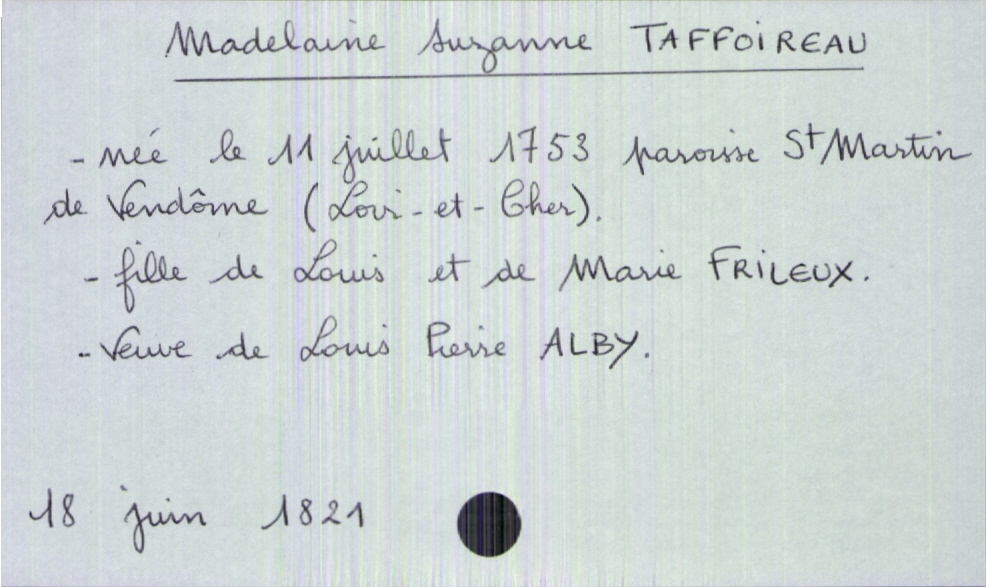 Madelaine Suzanne TAFFOIREAU
- née le 11 juillet 1753 paroisse St Martin
de Vendôme (Loir-et-Cher).
- fille de Louis et de Marie FRILEUX.
- Veuve de Louis Pierre ALBY.
18 juin 1821